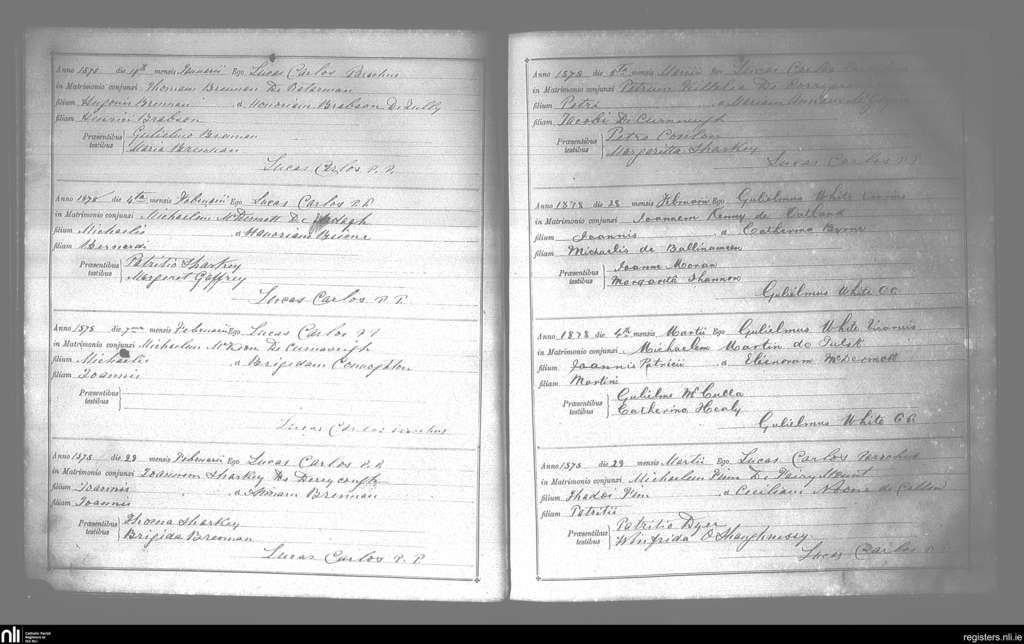 Anno 1878 die mensis Ego Lucas Carlos Parochus
in Matrimonio conjunxi Thomam Brennan De
filium Eugenii Brennan a Honoriam Brabson De Tully
filiam Henrici Brabson
Præsentibus testibus Gulielmo Brennan
Maria Brennan
Lucas Carlos P.P.
Anno 1878 die 4ta mensis Februarii Ego Lucas Carlos P.P.
in Matrimonio conjunxi Michaelem McDermott De
filium Michaelis a Honoriam
filiam Bernardi
Præsentibus testibus Patritio Sharkey
Margeret Gaffrey
Lucas Carlos P.P.
Anno 1878 die mensis Februarii Ego Lucas Carlos P.P.
in Matrimonio conjunxi Michaelem De
filium Michaelis a Brigidam Connaghton
filiam Joannis
Præsentibus testibus
Lucas Carlos Parochus
Anno 1878 die 28 mensis Februarii Ego Lucas Carlos P.P.
in Matrimonio conjunxi Joannem Sharkey De
filium Joannis a Annam Brennan
filiam Joannis
Præsentibus testibus Thoma Sharkey
Brigida Brennan
Lucas Carlos P.P.
Anno 1878 die 5ta mensis Martii Ego Lucas Carlos
in Matrimonio conjunxi Petrum De
filium Petri a Mariam
filiam Jacobi De
Præsentibus testibus Petro Conlon
Margeritta Sharkey
Lucas Carlos P.P.
Anno 1878 die 28 mensis Februarii Ego Gulielmus White Vicarius
in Matrimonio conjunxi Joannem Kenny de
filium Joannis a Catherina Byrne
filiam Michaelis de Ballinameen
Præsentibus testibus Joanne Moran
Margarita Shannon
Gulielmus White CC
Anno 1878 die 4th mensis Martii Ego Gulielmus White Vicarius
in Matrimonio conjunxi Michaelem Martin de Tulsk
filium Joannis Patricii a Eleinoram McDermott
filiam Martini
Præsentibus testibus Gulielmo
Catherina Healy
Gulielmus White CC
Anno 1878 die 29 mensis Martii Ego Lucas Carlos Parochus
in Matrimonio conjunxi Michaelem De Fairy Mount
filium Thadei a Ceciliam de
filiam Patritii
Præsentibus testibus Patritio Dyer
Winfrida O Shaughnessy
Lucas Carlos P.P.
nli Catholic Parish Registers at the NLI
registers.nli.ie